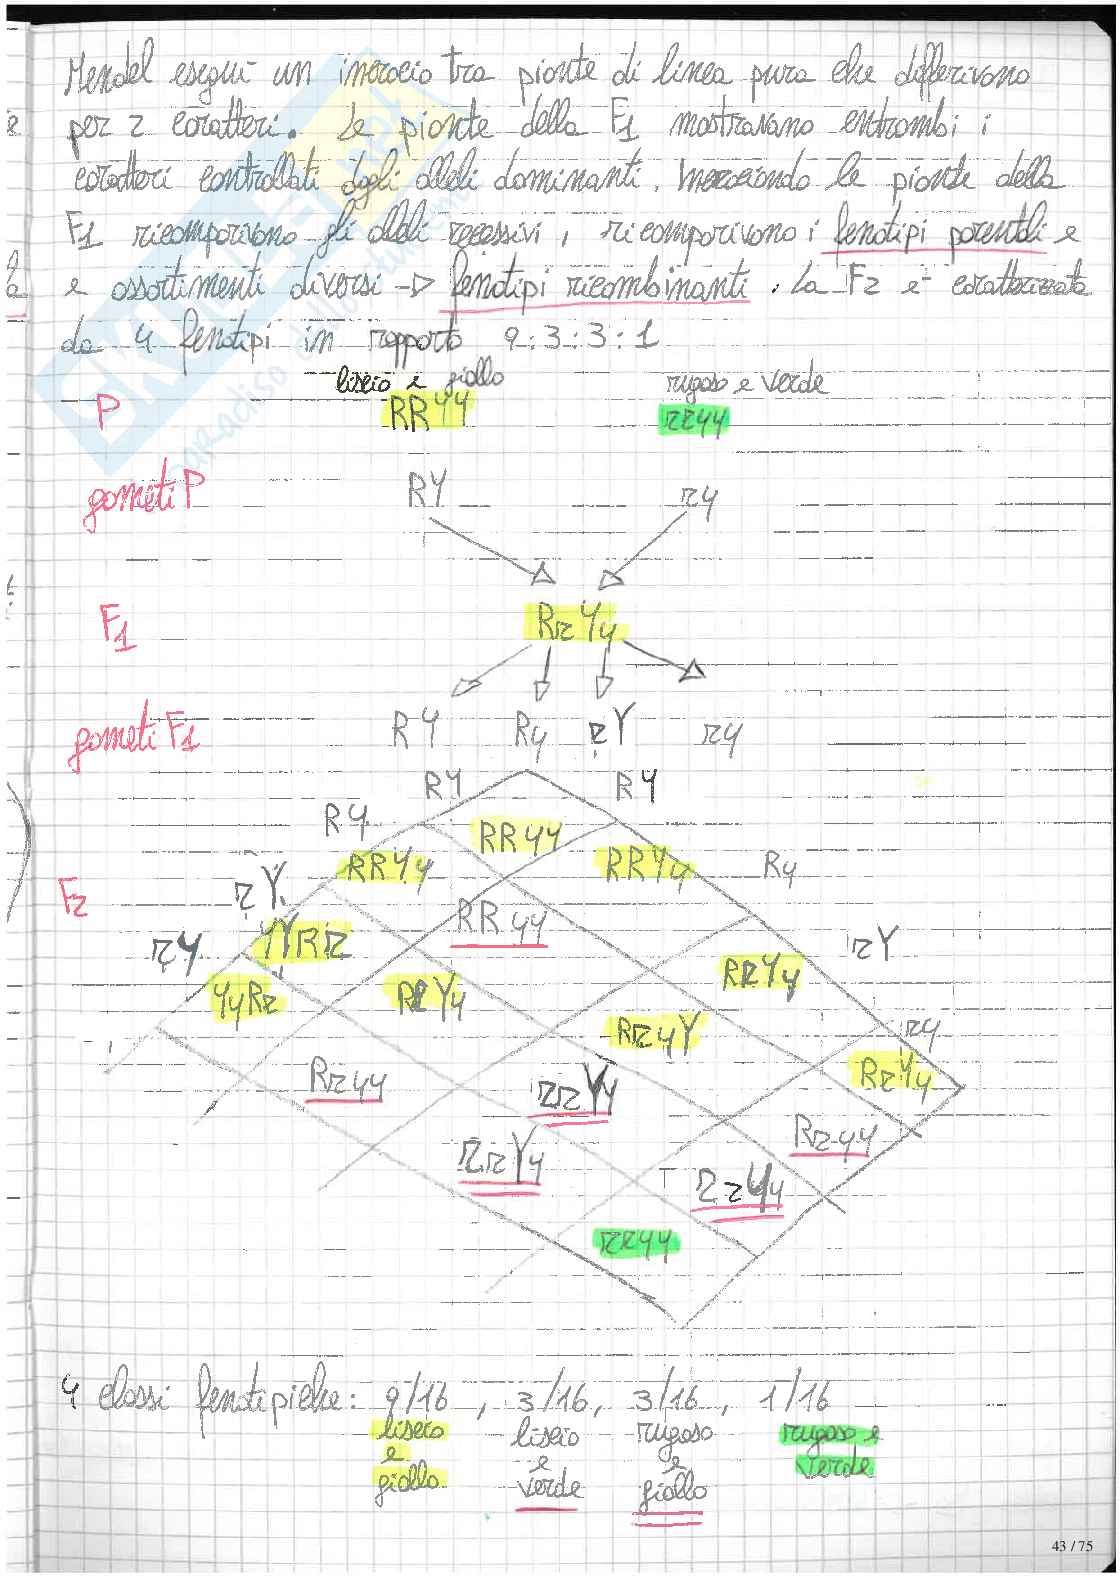 Mendel eseguì un incrocio tra piante di linea pura che differivono
per 2 caratteri. Le piante della F1 mostravano entrambi i
caratteri controllati dagli alleli dominanti. Incrociando le piante della
F1 ricomparivono gli alleli recessivi, ricomparivono i fenotipi parentali e
e assortimenti diversi → fenotipi ricombinanti. La F2 è caratterizzata
da 4 fenotipi in rapporto 9:3:3:1
liscio e giallo rugoso e verde
P RRYY rryy
gameti P RY ry
F1 RrYy
gameti F1 RY Ry rY ry
RY RY
Ry RRYY Ry
RRYy RRYy
rY RRyy rY
F2
ry YYRr RrYy
YyRr RrYy ry
RryY RrYy
Rryy rrYy
Rryy
rrYy rrYy
rryy
4 classi fenotipiche: 9/16 , 3/16, 3/16 , 1/16
liscio liscio rugoso rugoso e
e e e verde
giallo verde giallo
43 / 75